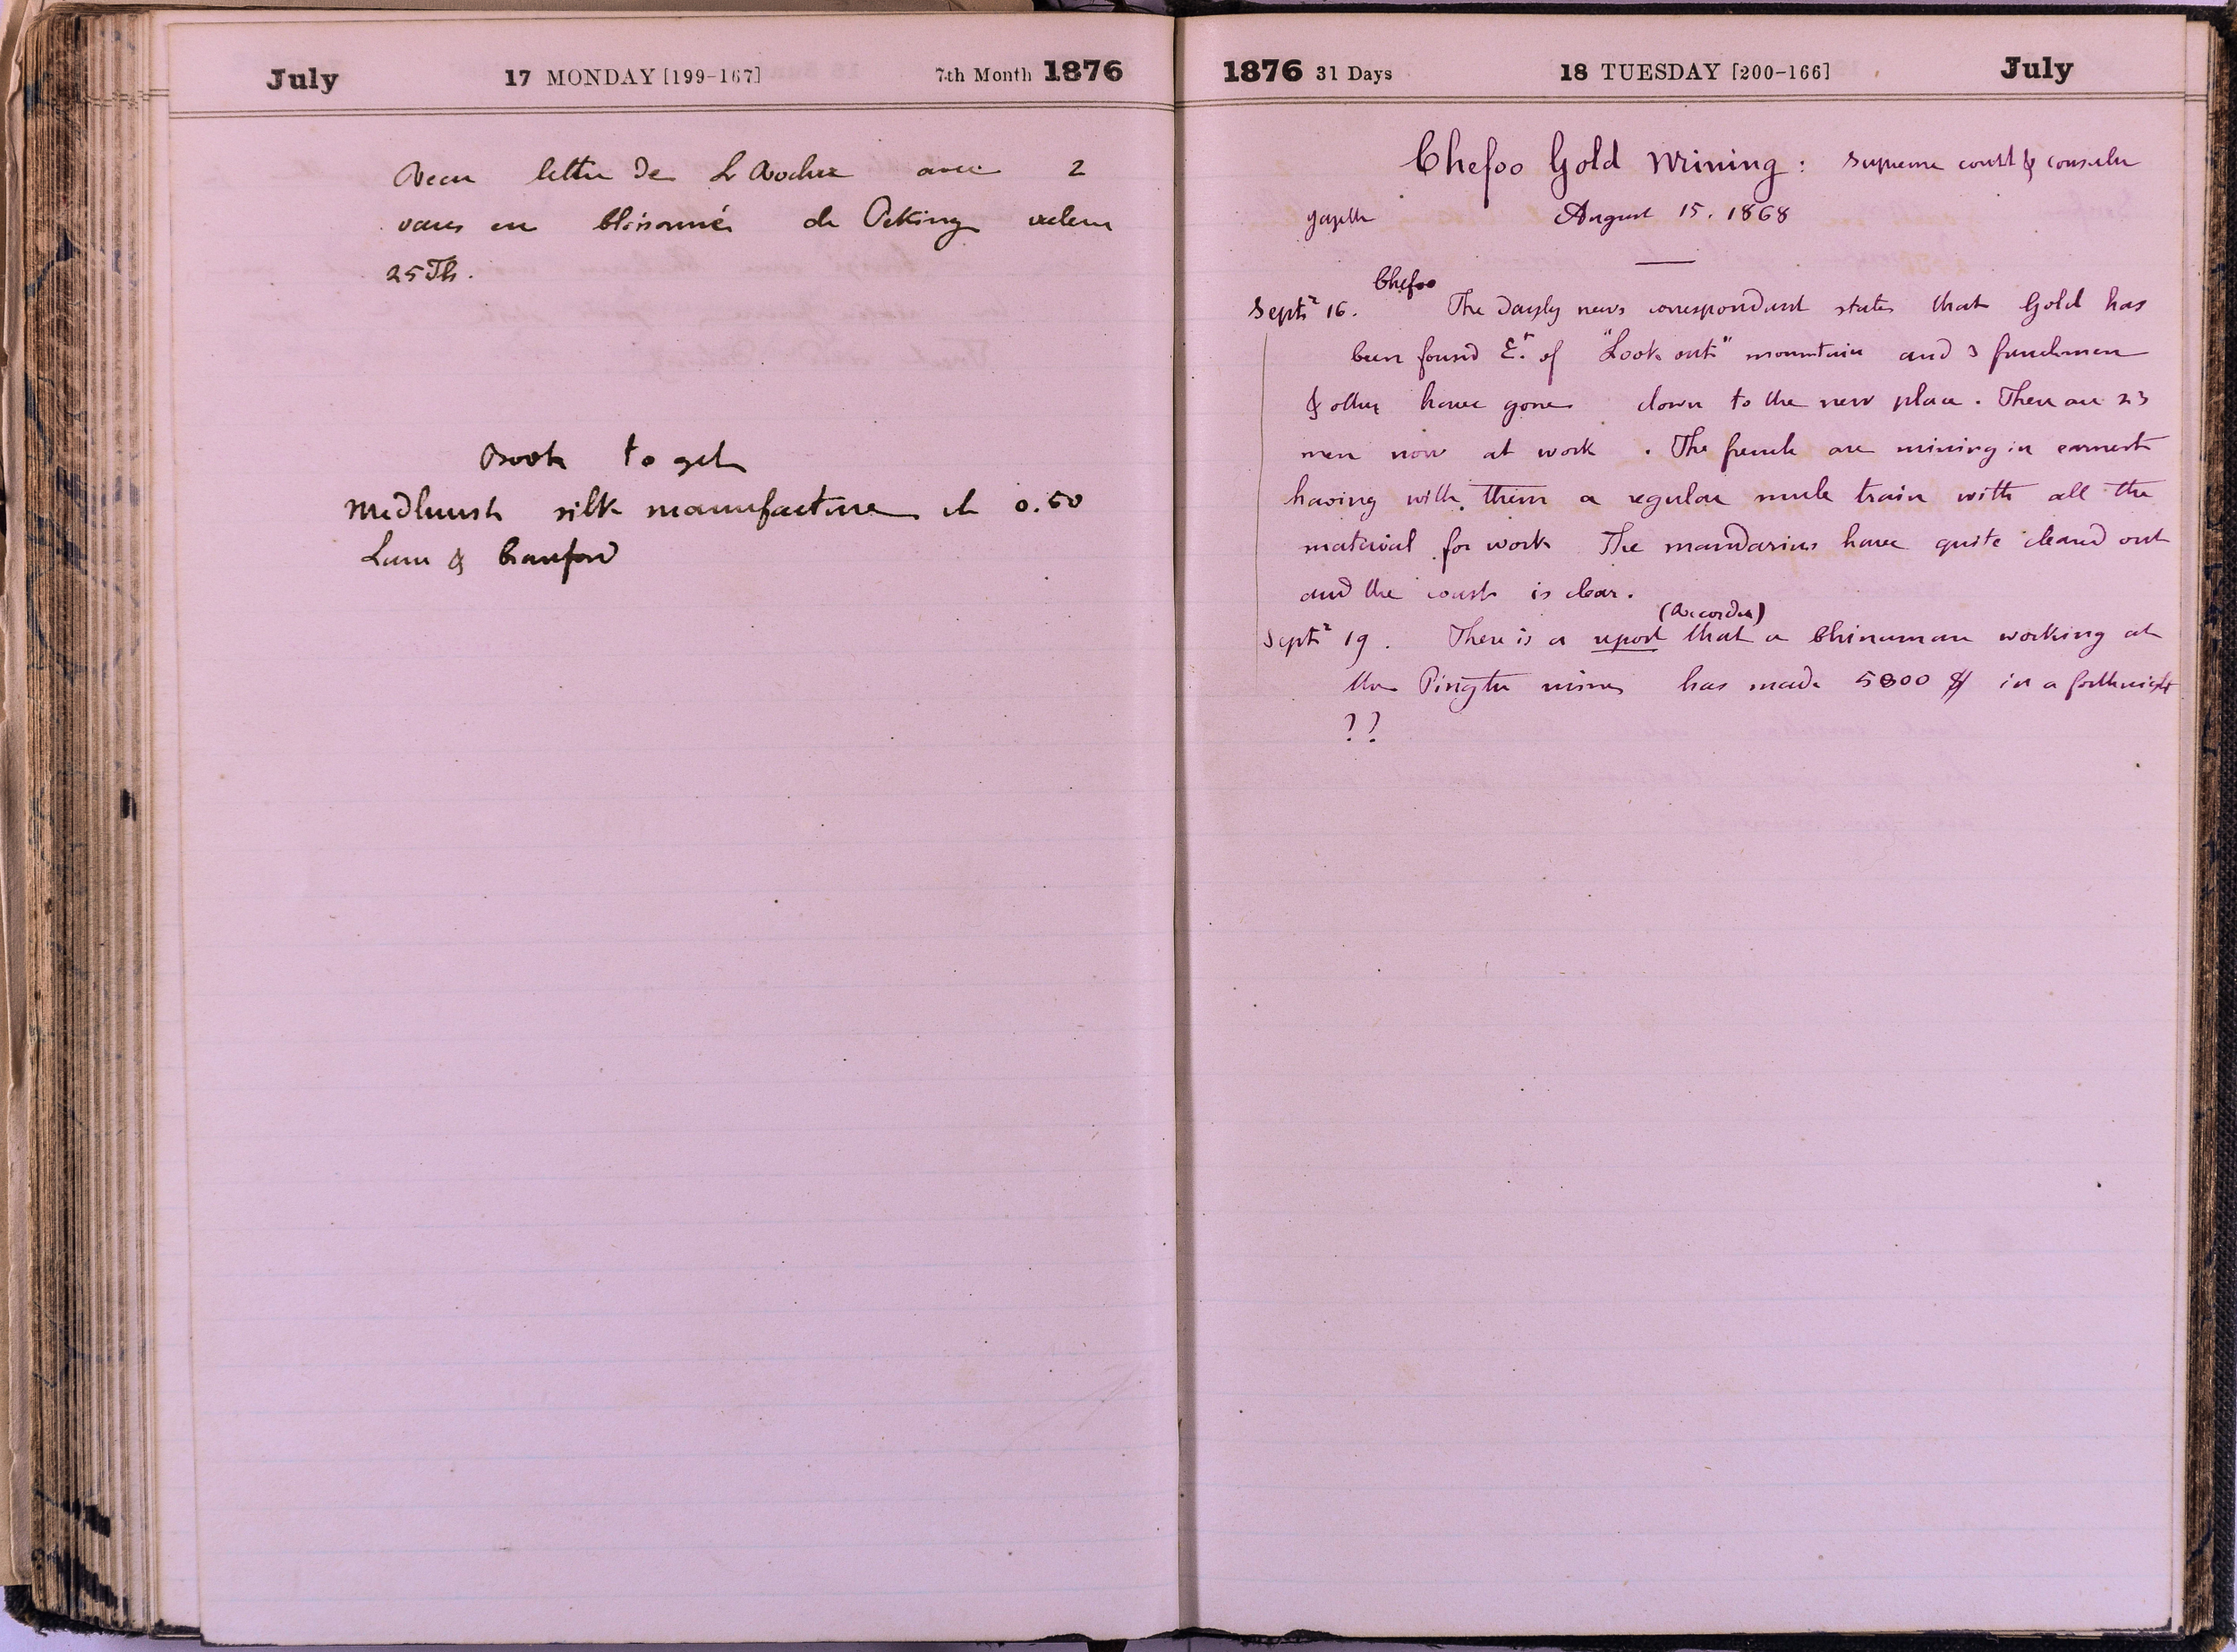 July 17 MONDAY [199-167] 7th Month 1876
Recu lettre de L Rocher avec 2
vases en Cloisonné de Peking valeur
25 Tls.
Book to get
Medhurst silk manufacture ch 0.50
Lane & Crauford
1876 31 Days 18 TUESDAY [200-166] July
Chefoo Gold Mining : Supreme court & consular
gazette August 15. 1868
Chefoo
Septr 16. The Dayly news correspondant states that Gold has
been found Et. of "Look out" mountain and 3 frenchmen
& other have gone down to the new place. There are 23
men now at work . The french are mining in earnest
having with them a regular mule train with all the
material for work The mandarins have quite cleared out
and the coast is clear.
(Recorder)
Septr 19. There is a report that a Chinaman working at
the Pingtu mines has made 5000 $ in a fortknight
??